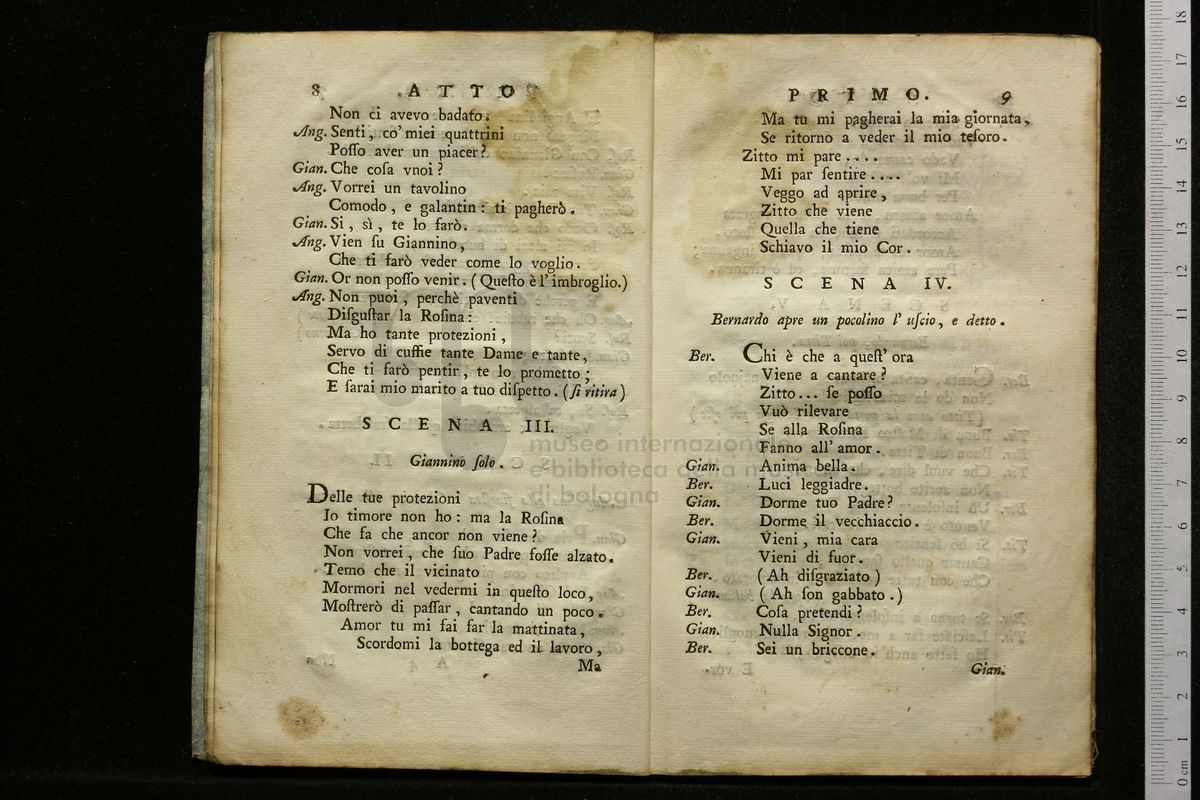 8 ATTO
Non ci avevo badato.
Ang. Senti, co' miei quattrini
Poſſo aver un piacer?
Gian. Che coſa vnoi?
Ang. Vorrei un tavolino
Comodo, e galantin: ti pagherò.
Gian. Si, sì, te lo farò.
Ang. Vien ſu Giannino,
Che ti farò veder come lo voglio.
Gian. Or non poſſo venir. (Queſto è l'imbroglio.)
Ang. Non puoi, perchè paventi
Diſguſtar la Roſina:
Ma ho tante protezioni,
Servo di cuffie tante Dame e tante,
Che ti farò pentir, te lo prometto;
E ſarai mio marito a tuo diſpetto. (ſi ritira)
SCENA III.
Giannino ſolo.
Delle tue protezioni
Io timore non ho: ma la Roſina
Che fa che ancor non viene?
Non vorrei, che ſuo Padre foſſe alzato.
Temo che il vicinato
Mormori nel vedermi in queſto loco,
Moſtrerò di paſſar, cantando un poco.
Amor tu mi fai far la mattinata,
Scordomi la bottega ed il lavoro,
Ma
PRIMO. 9
Ma tu mi pagherai la mia giornata,
Se ritorno a veder il mio teſoro.
Zitto mi pare....
Mi par ſentire....
Veggo ad aprire,
Zitto che viene
Quella che tiene
Schiavo il mio Cor.
SCENA IV.
Bernardo apre un pocolino l' uſcio, e detto.
Ber. Chi è che a queſt' ora
Viene a cantare?
Zitto... ſe poſſo
Vuò rilevare
Se alla Roſina
Fanno all' amor.
Gian. Anima bella.
Ber. Luci leggiadre.
Gian. Dorme tuo Padre?
Ber. Dorme il vecchiaccio.
Gian. Vieni, mia cara
Vieni di fuor.
Ber. (Ah diſgraziato)
Gian. (Ah ſon gabbato.)
Ber. Coſa pretendi?
Gian. Nulla Signor.
Ber. Sei un briccone.
Gian.
museo internazionale
e biblioteca della musica
di bologna
0 cm 1 2 3 4 5 6 7 8 9 10 11 12 13 14 15 16 17 18